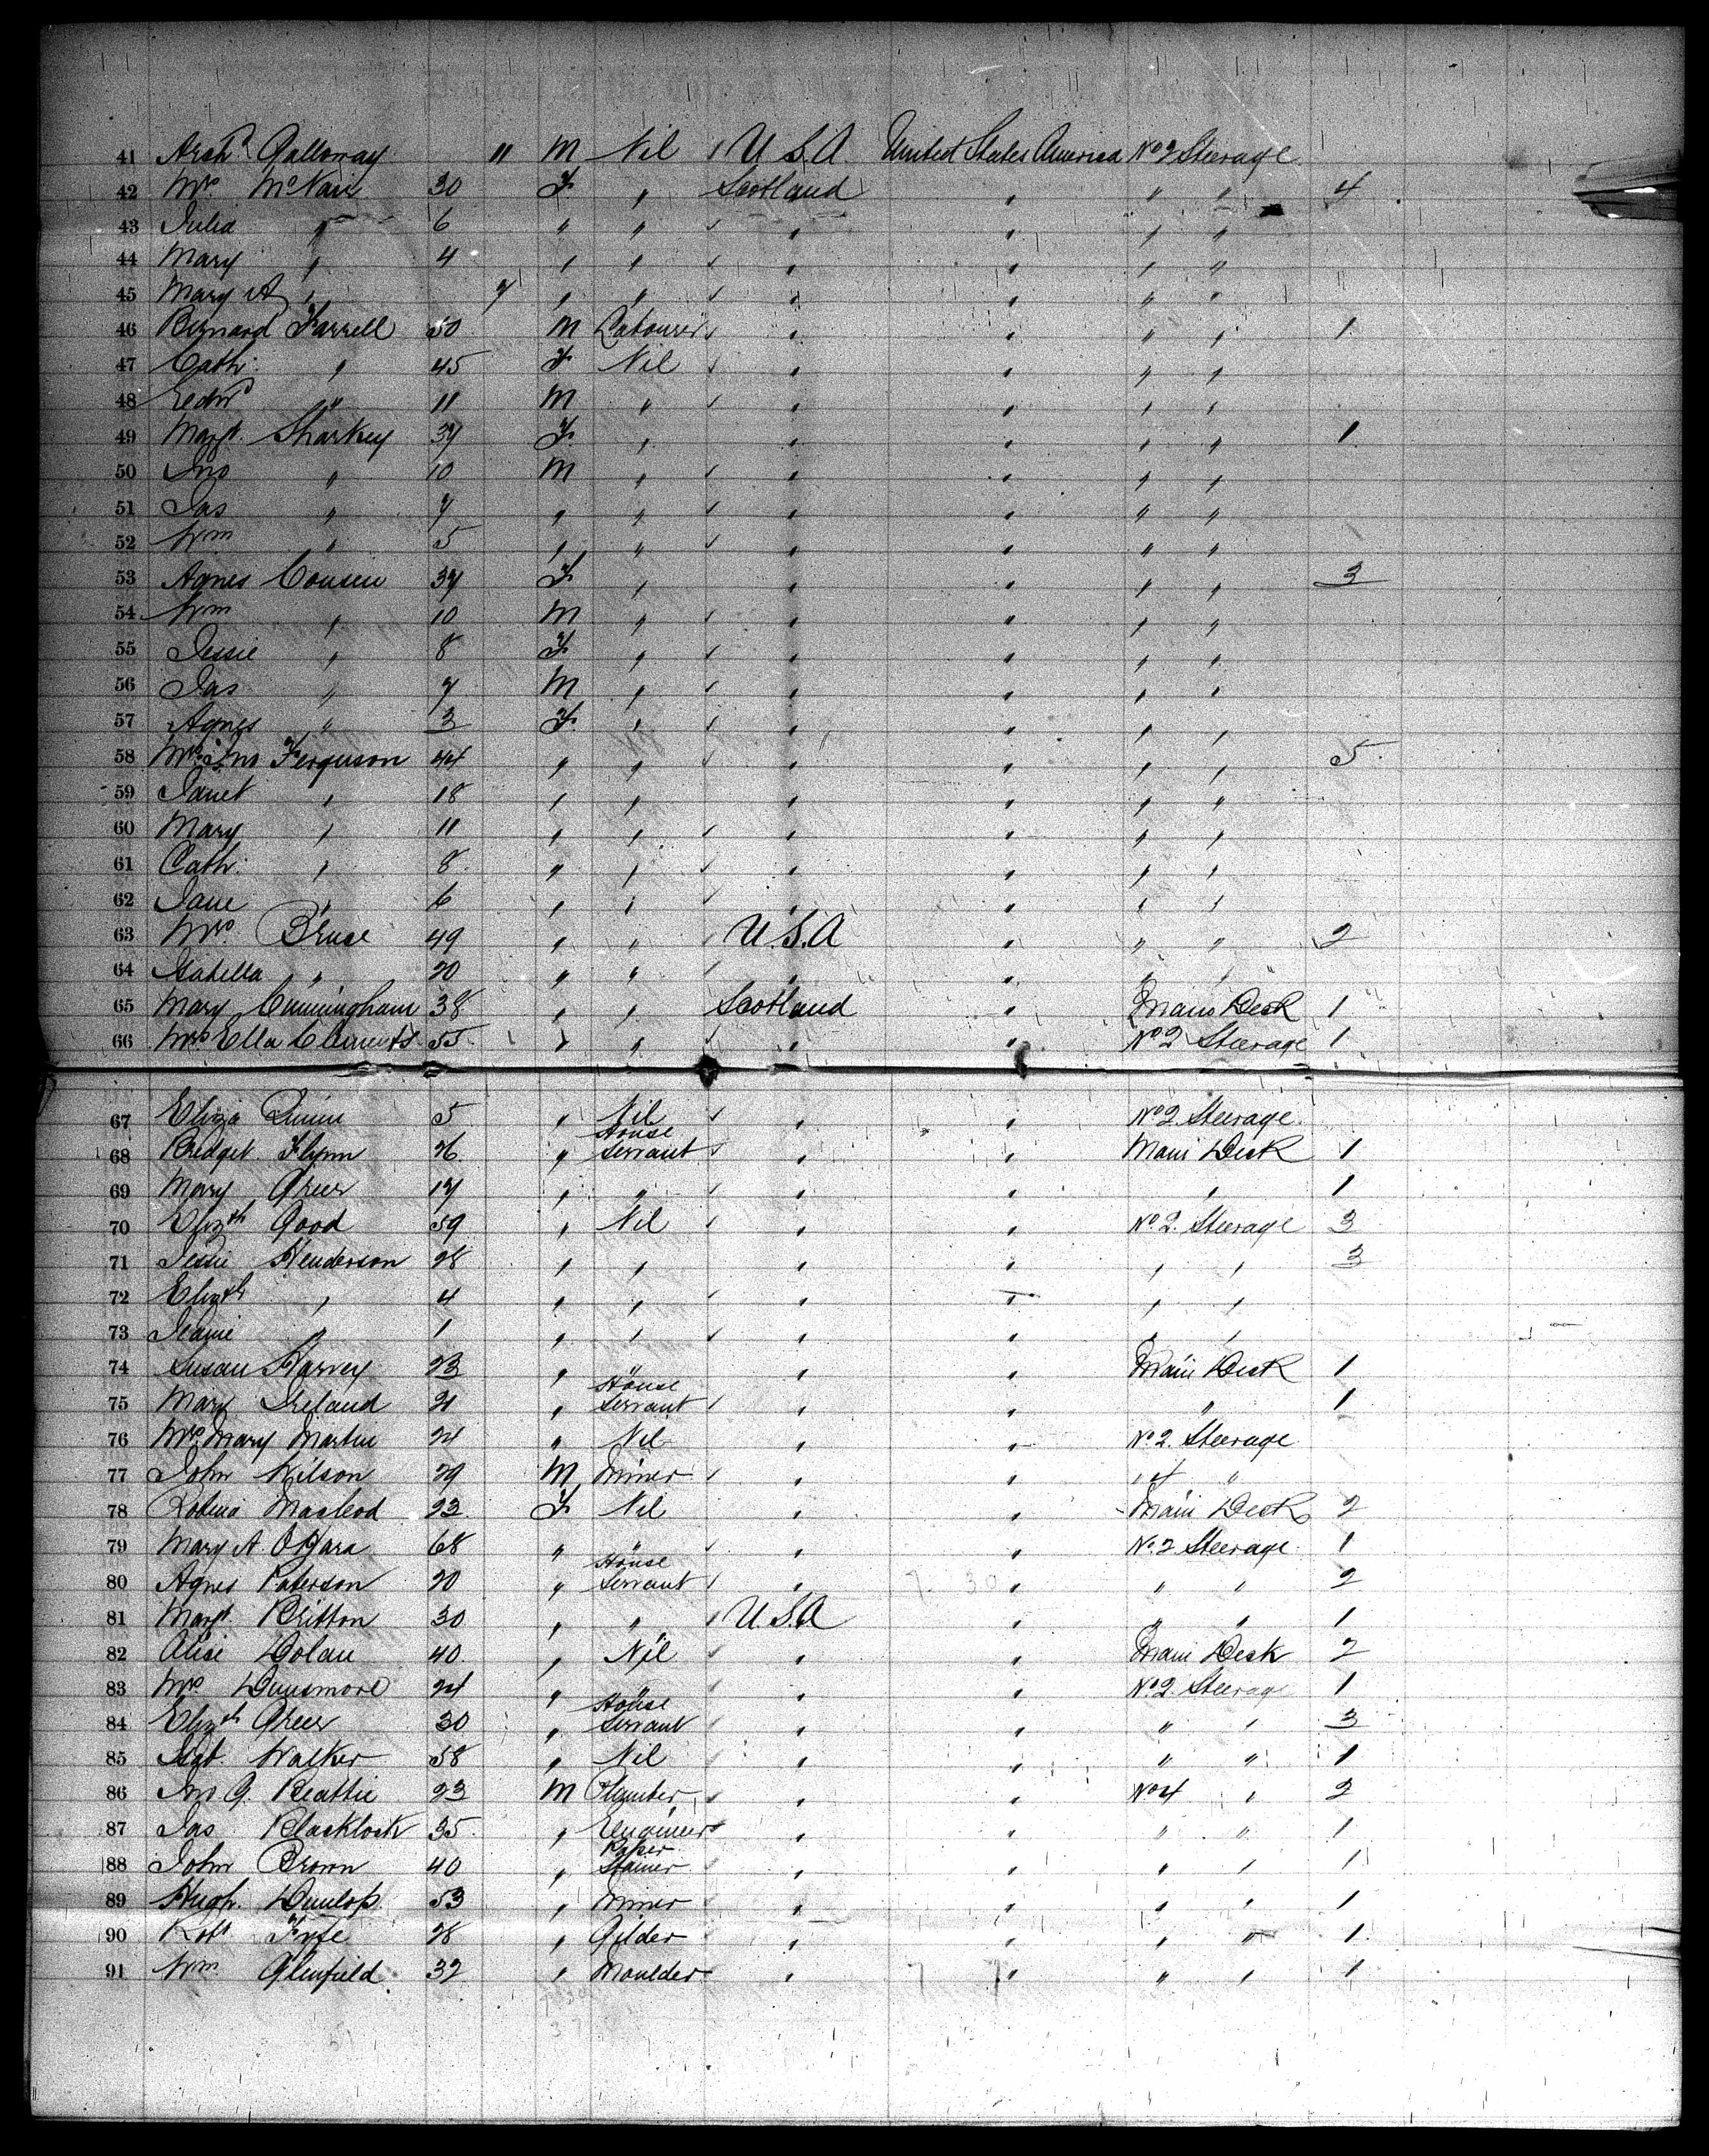 41 Archd Galloway " M Nil U.S.A. United States America No 2 Steerage
42 Mrs McNair 30 F " Scotland " " " 4
43 Julia " 6 " " " " " "
44 Mary " 4 " " " " " "
45 Mary A " 7 " " " " " "
46 Bernard Farrell 50 M Labourer " " " " 1
47 Cath: " 45 F Nil " " " "
48 Edwd " 11 M " " " " "
49 Margt. Sharkey 37 F " " " " " 1
50 Jno " 10 M " " " " "
51 Jas " 7 " " " " " "
52 Wm " 5 " " " " " "
53 Agnes Cousin 37 F " " " " " 3
54 Wm " 10 M " " " " "
55 Jessie " 8 F " " " " "
56 Jas " 7 M " " " " "
57 Agnes " 3 F " " " " "
58 Mrs Jno Ferguson 44 " " " " " " 5
59 Janet " 18 " " " " " "
60 Mary " 11 " " " " " "
61 Cath: " 8 " " " " " "
62 Jane " 6 " " " " " "
63 Mrs Bruce 49 " " U.S.A " " " 2
64 Isabella " 20 " " " " " "
65 Mary Cunningham 38 " " Scotland " Main Deck 1
66 Mrs Ella Clements 55 " " " " No 2 Steerage 1
67 Eliza Quinn 5 " Nil " " No 2 Steerage
68 Bridget Flynn 26 " House Servant " " Main Deck 1
69 Mary Greer 17 " " " " " 1
70 Elizth Good 59 " Nil " " No 2. Steerage 3
71 Jessie Henderson 28 " " " " " " 3
72 Elizth " 4 " " " " " "
73 Jeanie " 1 " " " " " "
74 Susan Harvey 23 " " " " Main Deck 1
75 Mary Ireland 21 " House Servant " " " 1
76 Mrs Mary Martin 24 " Nil " " No 2. Steerage
77 John Wilson 29 M Miner " " 4 "
78 Robina Macleod 23 F Nil " " Main Deck 2
79 Mary A. O'Hara 68 " " " " No 2 Steerage 1
80 Agnes Paterson 20 " House Servant " " " " 2
81 Margt. Britton 30 " " U.S.A " " " 1
82 Alice Dolan 40 " Nil " " Main Deck 2
83 Mrs Dunsmore 24 " " " " No 2 Steerage 1
84 Elizth Greer 30 " House Servant " " " " 3
85 Isab. Walker 58 " Nil " " " " 1
86 Jno G. Beattie 23 M Plumber " " No 4 " 2
87 Jas Blacklock 35 " Engineer " " " " 1
88 John Brown 40 " Paper Stainer " " " " 1
89 Hugh Dunlop 53 " Miner " " " " 1
90 Robt Fyfe 28 " Gilder " " " " 1
91 Wm Glenfield 32 " Moulder " " " " 1